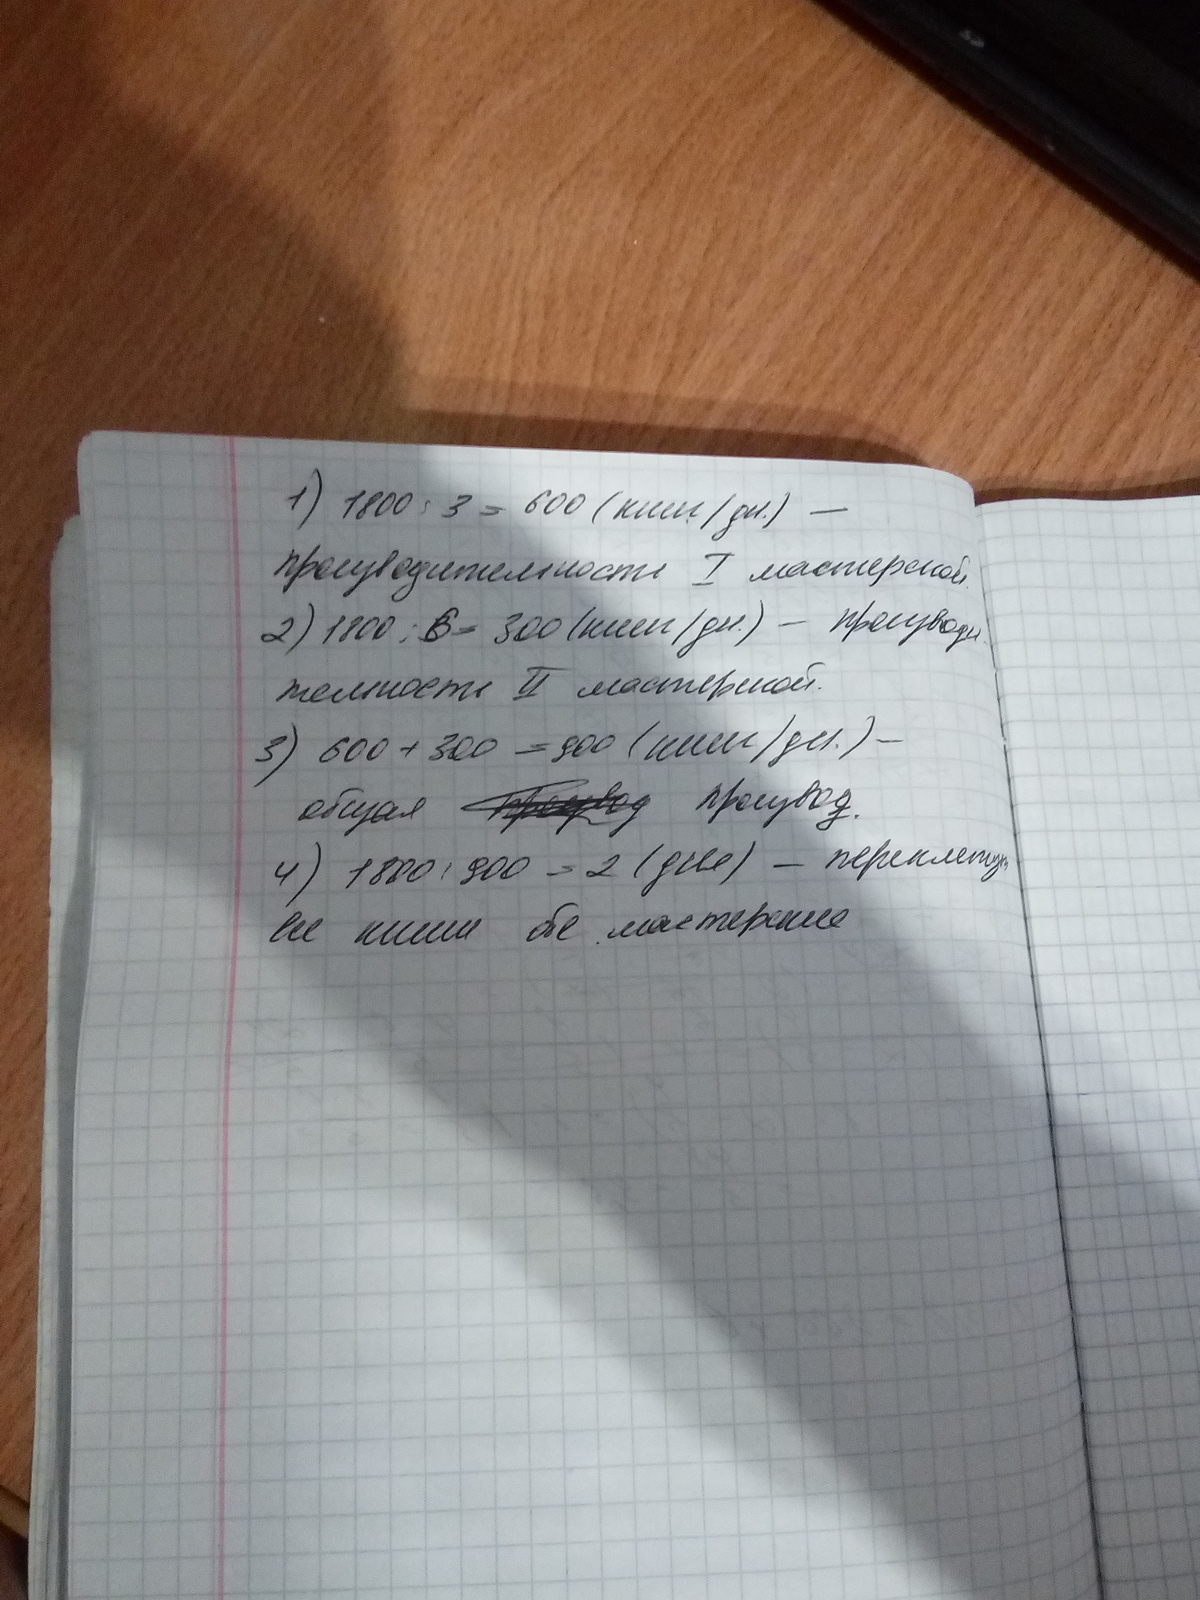 1) 1800 : 3 = 600 (книг/дн.) —
производительность I мастерской.
2) 1800 : 6 = 300 (книг/дн.) — производи
тельность II мастерской.
3) 600 + 300 = 900 (книг/дн.) —
общая произвед произвед.
4) 1800 : 900 = 2 (дня) — переплетут
все книги обе мастерские